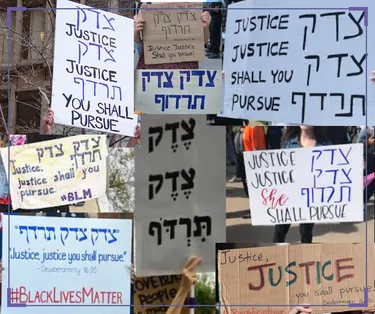 צדק
JUSTICE
צדק
JUSTICE
תרדוף
YOU SHALL
PURSUE
צדק צדק
תרדוף
Justice Justice
Shall you
pursue!
צדק צדק
תרדוף
JUSTICE צדק
JUSTICE צדק
SHALL YOU
PURSUE תרדף
צדק צדק
תרדוף
Justice,
justice shall you
pursue.
#BLM
צֶדֶק
צֶדֶק
תִּרְדֹּף
JUSTICE צדק
JUSTICE צדק
She תרדוף
SHALL PURSUE
"צדק צדק תרדף"
"Justice, justice you shall pursue"
- Deuteronomy 16:20
#BLACKLIVESMATTER
BLACK
PEOPLE
Justice,
JUSTICE
you shall pursue.